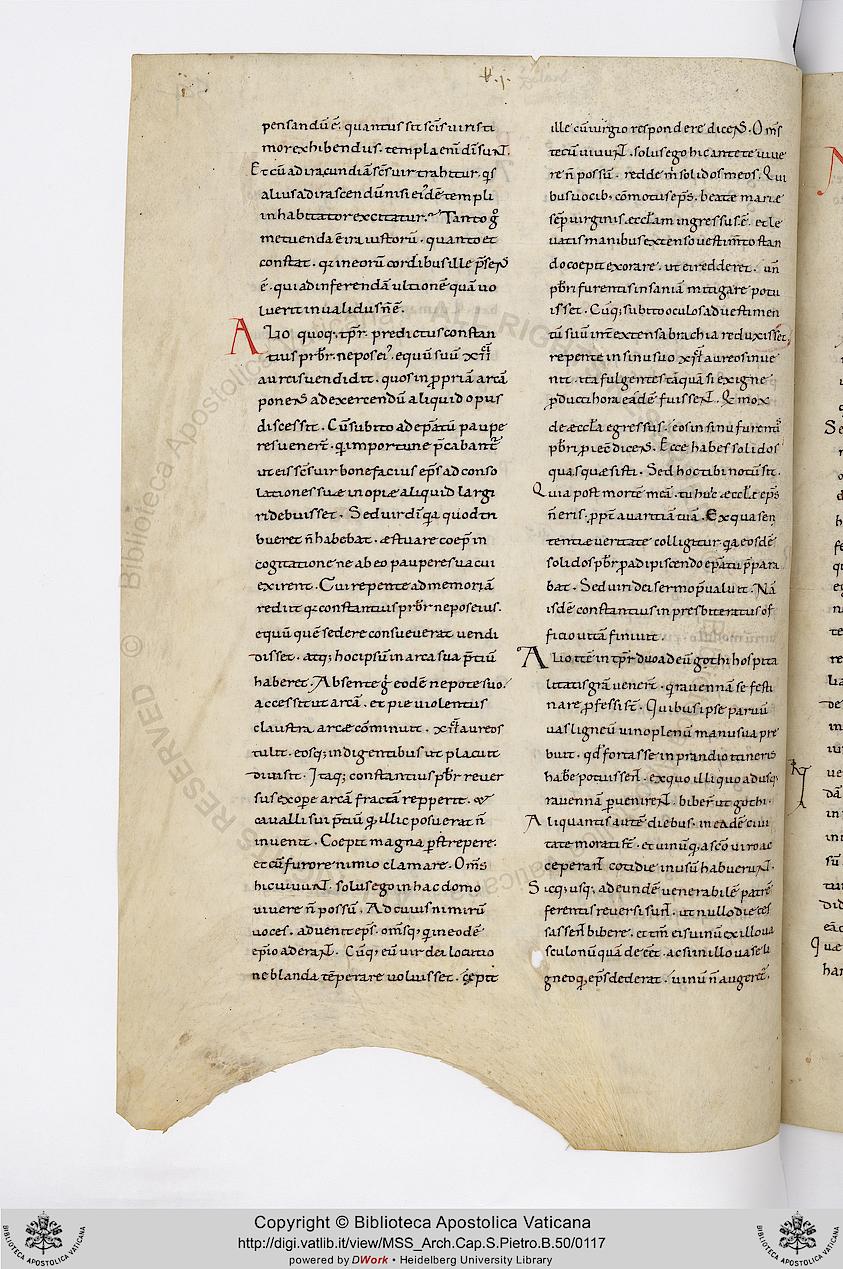 v. j.
pensandū ē. quantus sit sc̄is viris ti
mor exhibendus. templa enī dī sunt.
Et cū ad iracundiā sc̄s vir trahitur. q̄s
alius ad irascendū nisi eiꝰdē templi
inhabitator excitatur. Tanto g̊
metuenda ē ira iustorū. quanto et
constat. qꝛ in eorū cordibus ille p̄sens
ē. qui ad inferendā ultionē quā vo
luerit invalidus n̄ ē.
Alio quoqꝫ tp̄r. predictus constan
tius pr̄br. nepos eiꝰ. equū suū xii
aureis vendidit. quos in ꝓpriā arcā
ponens ad exercendū aliquid opus
discessit. Cū subito ad ep̄atū paupe
res venerr̄t. qi importune p̄cabant̄
ut eis sc̄s vir bonefacius ep̄s ad conso
lationes suæ inopiæ aliquid largi
ri debuisset. Sed vir dī qa quod tri
bueret n̄ habebat. æstuare coep̄ in
cogitatione ne ab eo pauperes vacui
exirent. Cui repente ad memoriā
rediit qꝛ constantius pr̄br nepos eius.
equū quē sedere consueverat vendi
disset. atqꝫ hoc ipsum in arca sua p̄tiū
haberet. Absente g̊ eodē nepote suo.
accessit ut arcā. et pie violentus
claustra arcæ cōminuit. xii aureos
tulit. eosqꝫ indigentibus ut placuit
divisit. Itaqꝫ constantius pb̄r rever
sus ex opere arcā fractā repperit. &
cavalli sui p̄tiū qd illic posuerat n̄
invenit. Coepit magna ꝑstrepere.
et cū furore nimio clamare. Om̄s
hic vivunt. solus ego in hac domo
vivere n̄ possū. Ad cuius nimirū
voces. advenit ep̄s. om̄sqꝫ qi in eodē
ep̄io aderant. Cūqꝫ eū vir dei locutio
ne blanda tēperare voluisset. cępit
ille cū iurgio respondere dicens. Om̄s
tecū vivunt. solus ego hic ante te vive
re n̄ possū. redde m̄ solidos meos. Qui
bus vocib; cōmotus ep̄s. beate mariæ
sēp virginis. eccl̄am ingressus. ē. et le
vatis manibus extenso vestim̄to stan
do coepit exorare. ut ei redderet. un̄
pb̄ri furentis insaniā mitigare potu
isset. Cūqꝫ subito oculos ad vestimen
tū suū int̄ extensa brachia reduxisset.
repente in sinu suo xii aureos inve
nit. ita fulgentes tāquā si ex igne
ꝓducti hora eadē fuissent. Qi mox
de æccl̄a egressus. eos in sinu furentis
pb̄ri ꝓiecē dicens. Ecce habes solidos
quas quæsisti. Sed hoc tibi notū sit.
Quia post mortē meā. tu huiꝰ æccl̄æ ep̄s
n̄ eris. ꝓpt̄ avaritiā tuā. Ex qua sen
tentiæ veritate colligitur. qa eosdē
solidos pb̄r ꝓ adipiscendo ep̄atu p̄para
bat. Sed viri dei sermo p̄valuit. Nā
isdē constantius in presbiteratus of
ficio vitā finivit.
Alio itē in tp̄r duo ad eū gothi hospita
litatis gr̄a vener̄t. qi ravennā se festi
nare ꝓfessi st̄. Quibus ipse parvū
vas ligneū vino plenū manu sua pre
buit. qd̄ fortasse in prandio itineris
hab̄e potuissent. ex quo illi quo adusqꝫ
ravennā ꝑvenirent. biber̄ ut gothi.
Aliquantis autē diebus. in eadē civi
tate morati st̄. et vinū qd a sc̄o viro ac
ceperant. cotidie in usū habuerunt.
Sicqꝫ usqꝫ ad eundē venerabilē patrē
ferentis reversi sunt. ut nullo die ces
sassent bibere. et tm̄ eis vinū ex illo va
sculo nūquā deēēt. ac si in illo vase li
gneo qd ep̄s dederat. vinū n̄ augeret̄.
Copyright © Biblioteca Apostolica Vaticana
http://digi.vatlib.it/view/MSS_Arch.Cap.S.Pietro.B.50/0117
powered by DWork • Heidelberg University Library